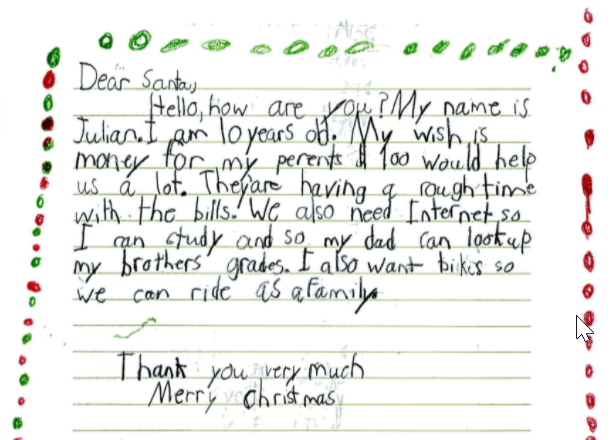 Dear Santa,
Hello, how are you? My name is
Julian. I am 10 years old. My wish is
money for my perents $ 100 would help
us a lot. They're having a rough time
with the bills. We also need Internet so
I can study and so my dad can look up
my brothers' grades. I also want bikis so
we can ride as a Family
Thank you very much
Merry Christmas